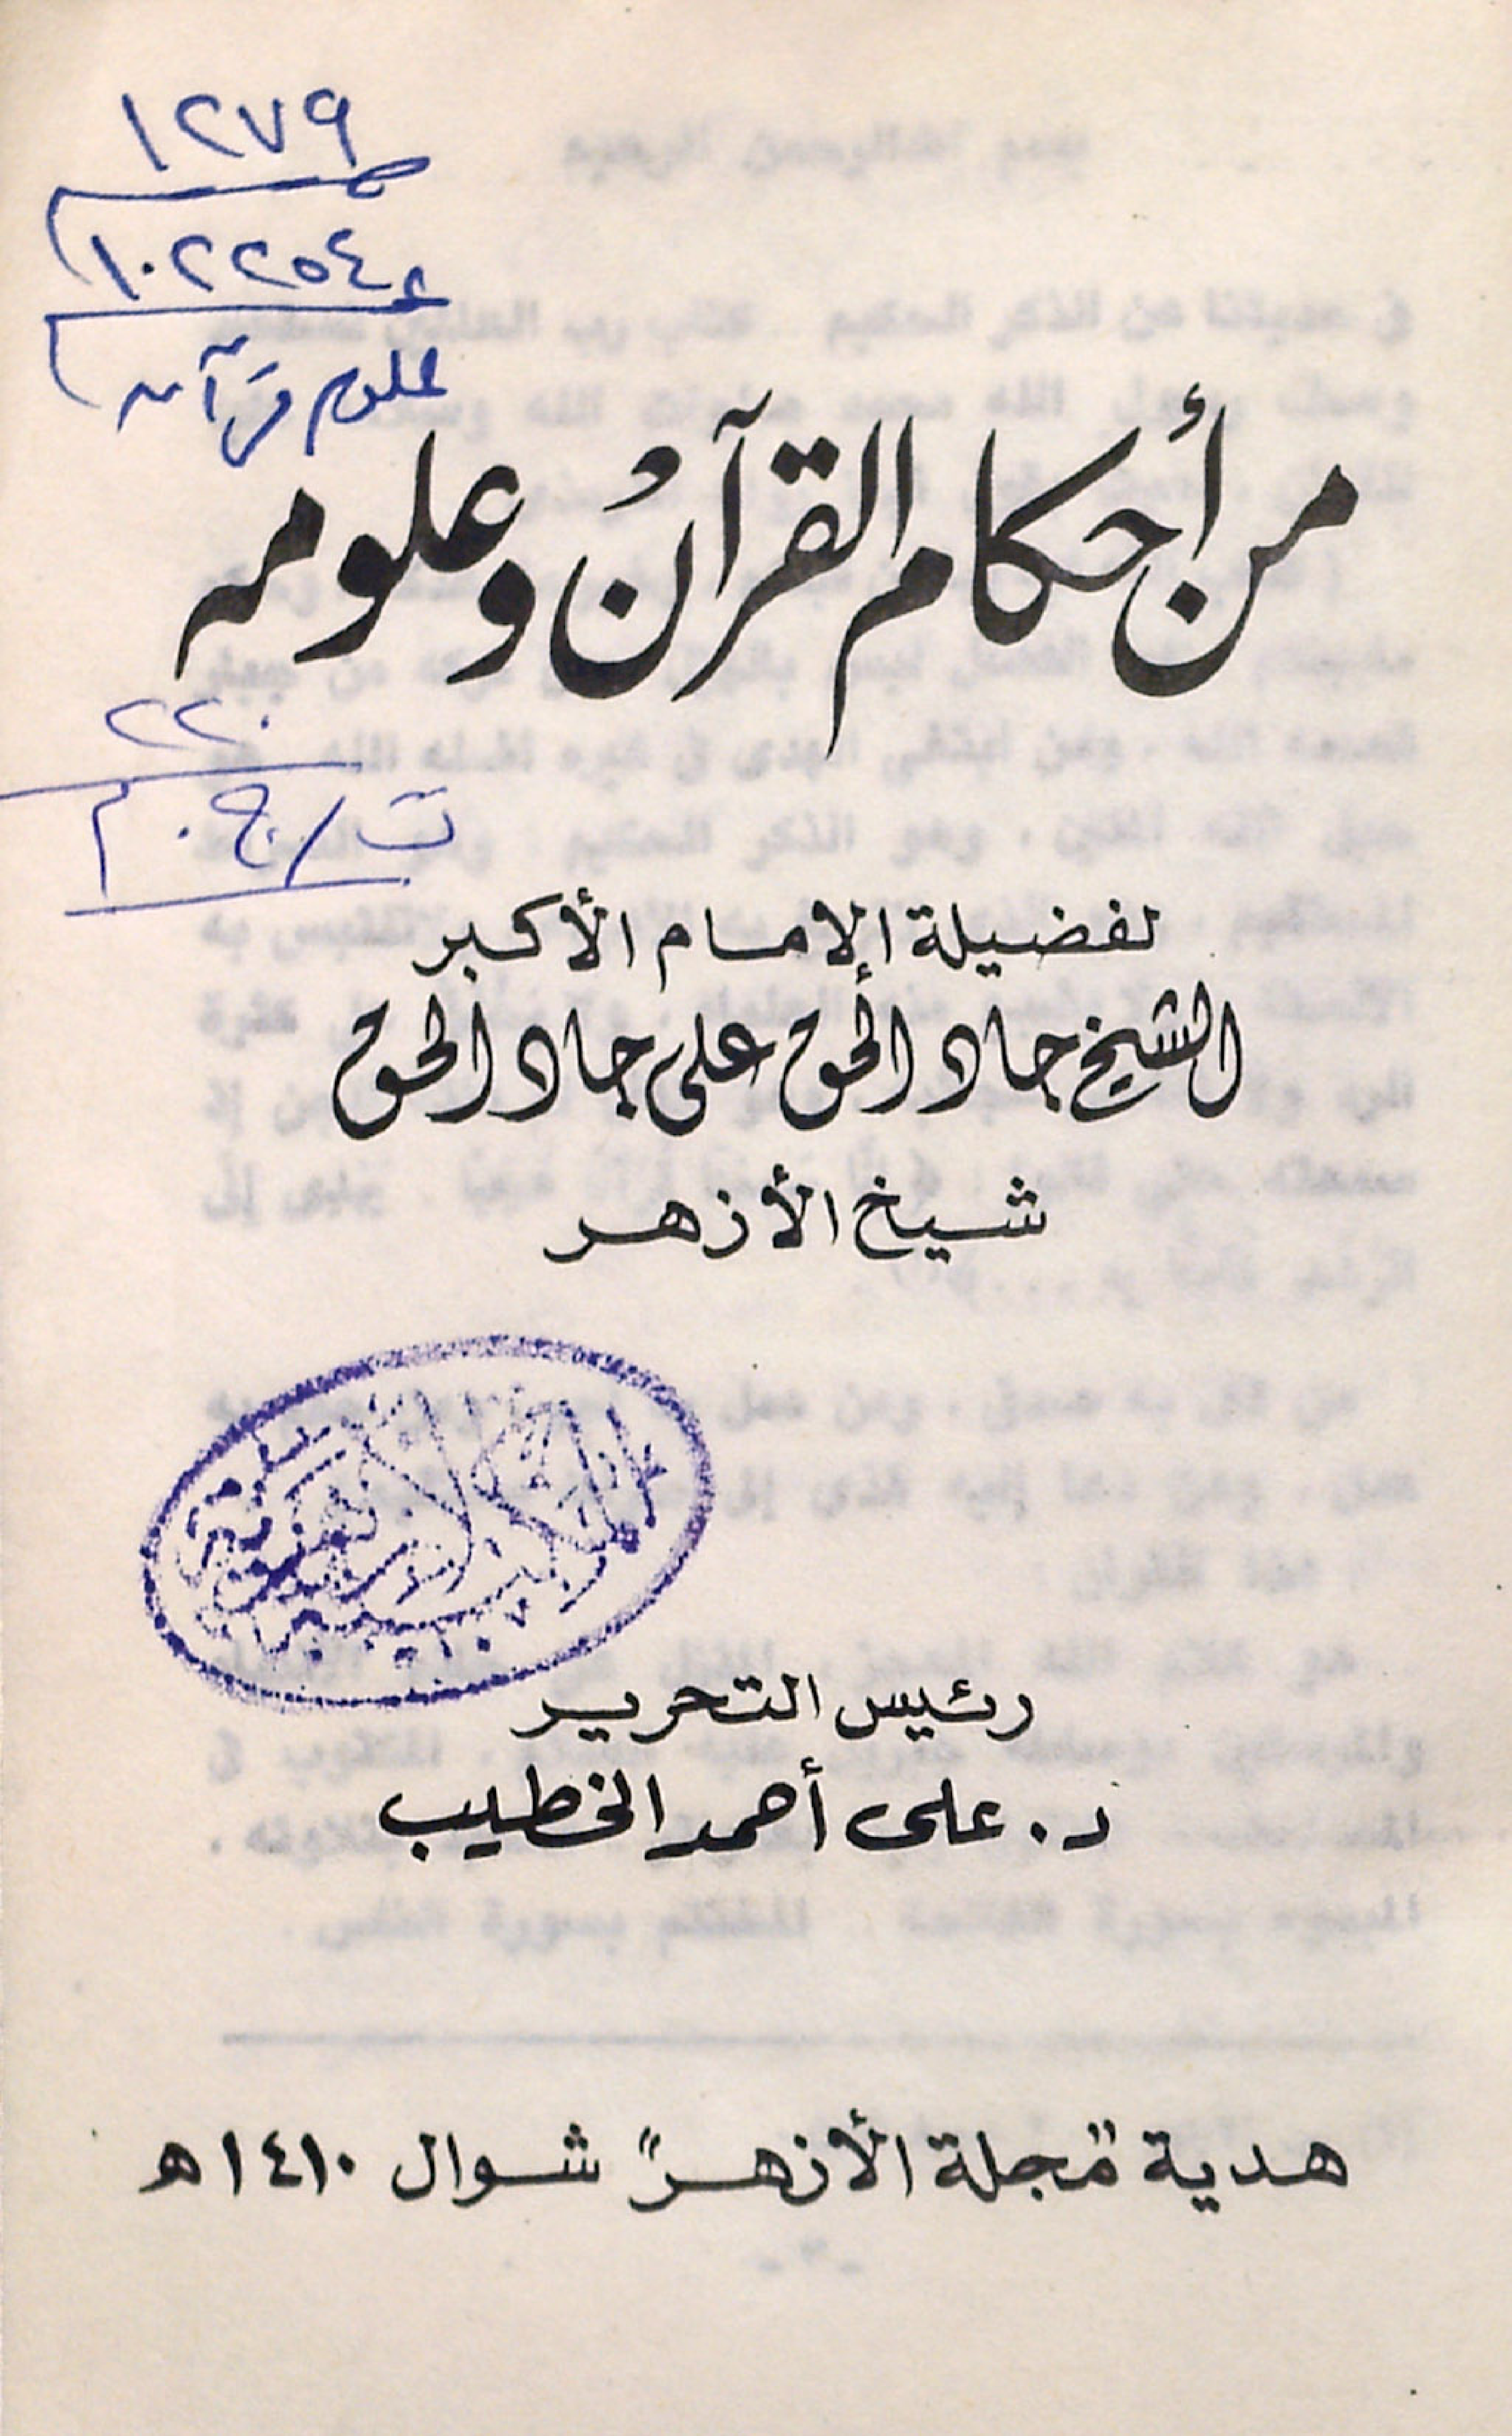 ١٢٧٩
١٠٢٢٥٤ ع
علوم قرآن
من أحكام القرآن وعلومه
٢٢٠
ت / ج . م
لفضيلة الإمام الأكبر
الشيخ جاد الحق على جاد الحق
شيخ الأزهر
المكتبة الأزهرية
رئيس التحرير
د. على أحمد الخطيب
هدية "مجلة الأزهر" شوال ١٤١٠ه